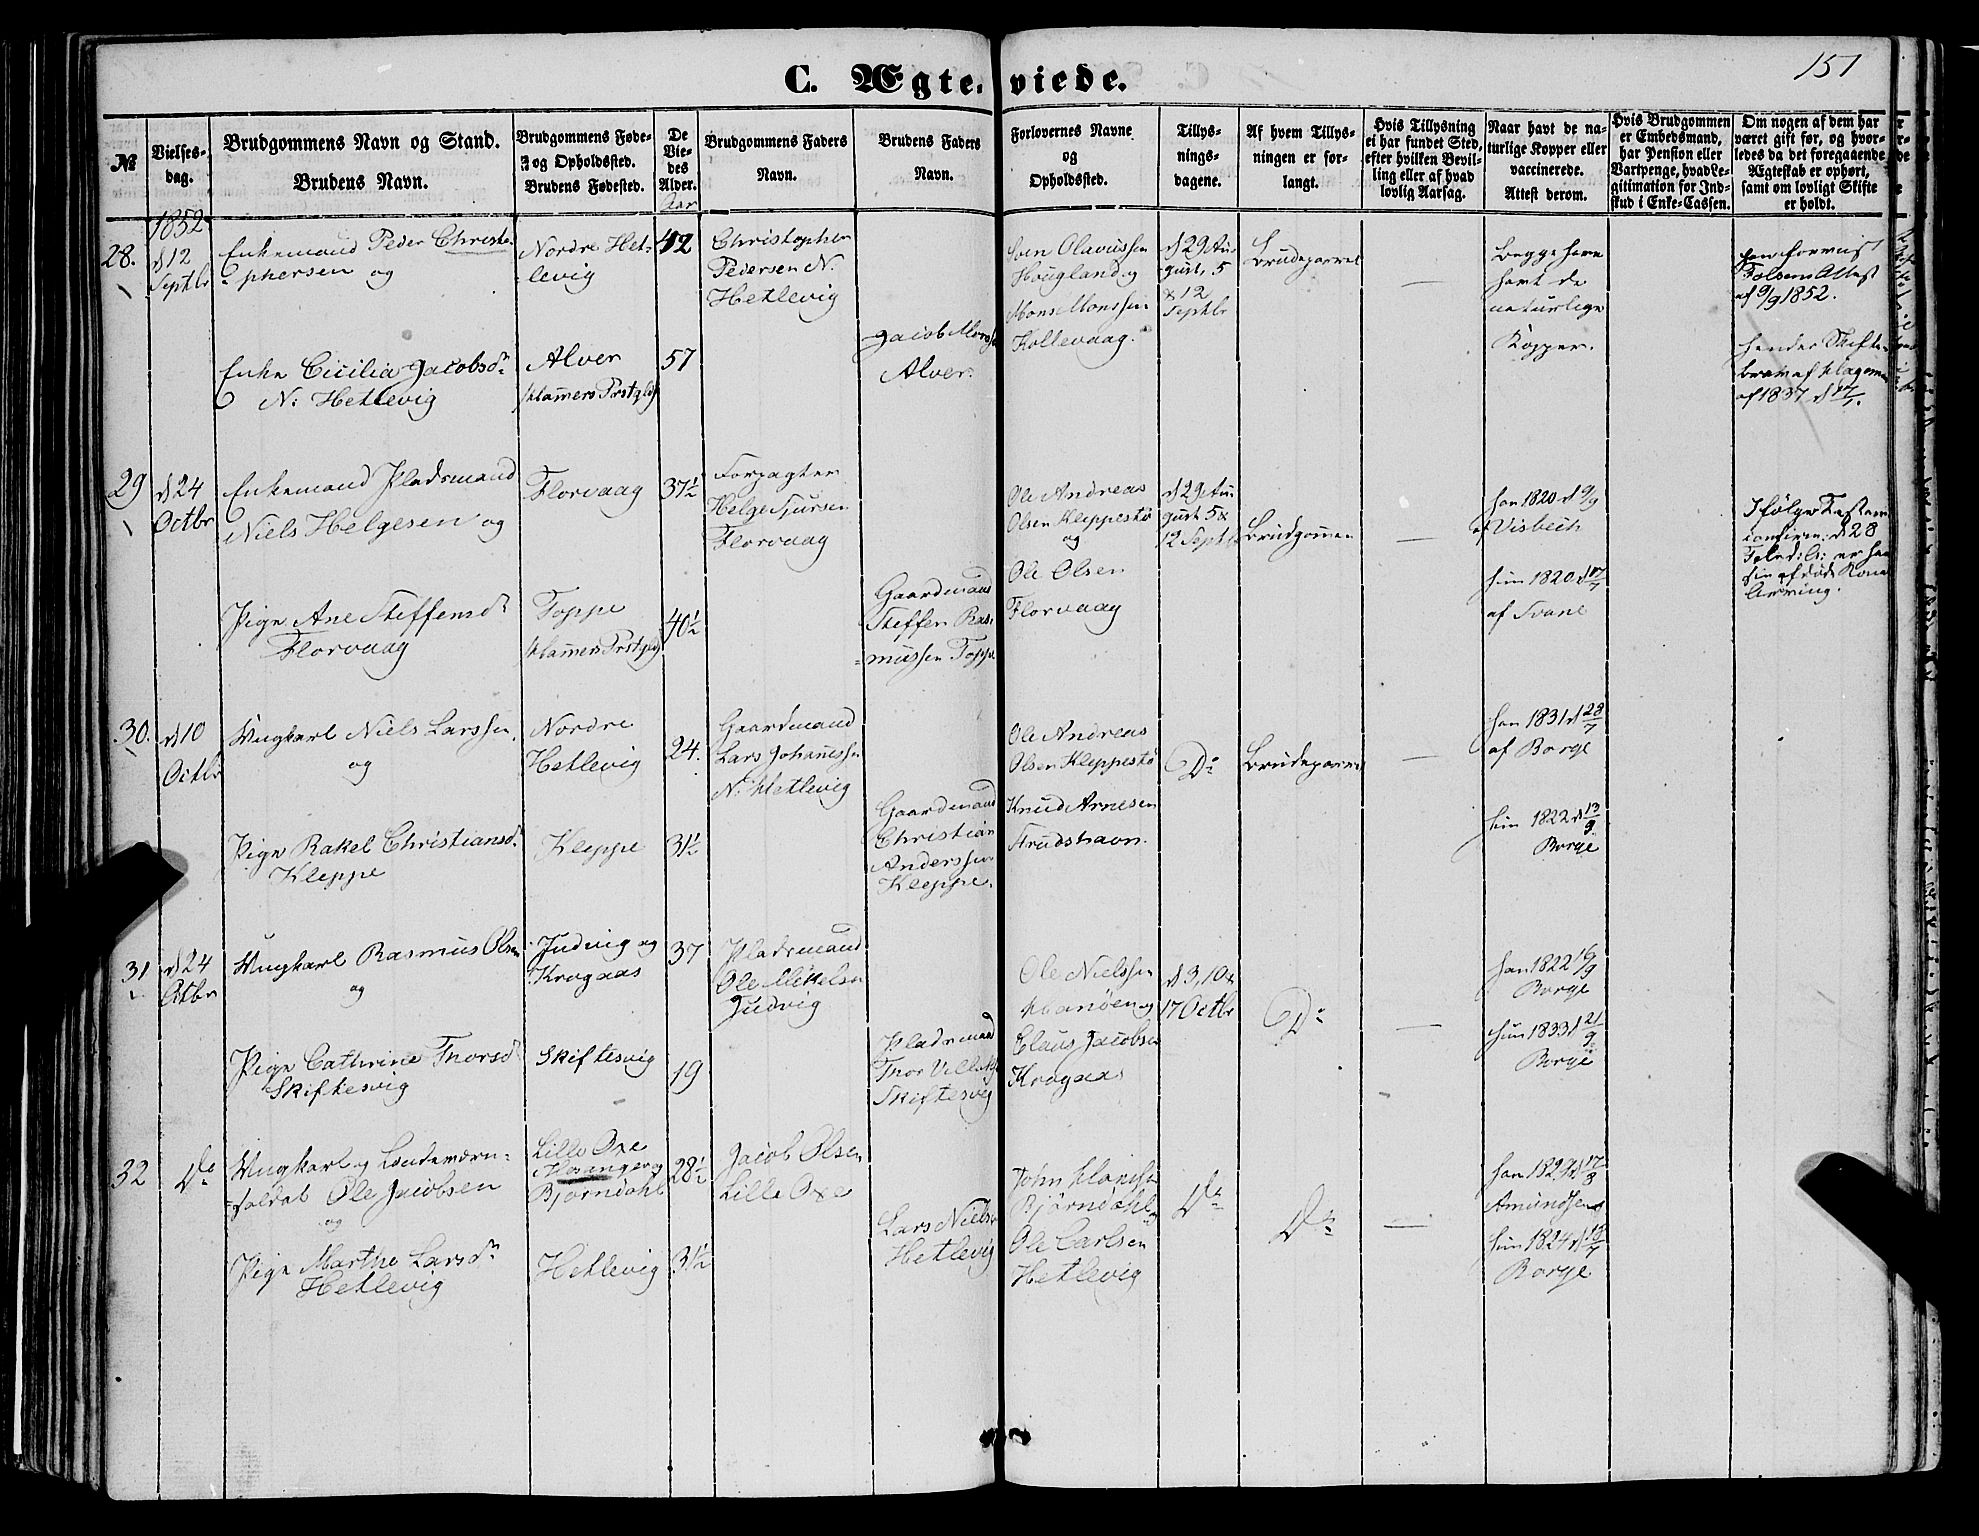 151
C. Ægteviede.
№
Vielses-
dag.
Brudgommens Navn og Stand.
Brudens Navn.
Brudgommens Føde-
og Opholdssted.
Brudens Fødested.
De
Vie-
des
Alder.
Aar
Brudgommens Faders
Navn.
Brudens Faders
Navn.
Forlovernes Navne
og
Opholdssted.
Tillys-
nings-
dagene.
Af hvem Tillys-
ningen er for-
langt.
Hvis Tillysning
ei har fundet Sted,
efter hvilken Bevil-
ling eller af hvad
lovlig Aarsag.
Naar havt de na-
turlige Kopper eller
vaccinerede.
Attest derom.
Hvis Brudgommen
er Embedsmand,
har Pension eller
Vartpenge, hvad Le-
gitimation for Ind-
skud i Enke-Cassen.
Om nogen af dem har
været gift før, og hvor-
ledes da det foregaaende
Ægteskab er ophørt,
samt om lovligt Skifte
er holdt.
1852
28.
d 12
Septbr
Enkemand Peder Christo-
phersen og
Nordre Het-
levig
42
Christopher
Pedersen N.
Hetlevig
Sven Olavussen
Hougland og
Mons Monssen
Kollevaag.
d 29 Au-
gust, 5
& 12
Septbr
Brudeparret
—
Begge have
havt de
naturlige
Kopper.
Attest
af 9/9 1852.
Enke Cicilia Jacobsdr
N: Hetlevig
Alver
Hamers Prstgld
57
Jacob
Alver.
hendes Skifte-
brev af
af 1837 d 17/1.
29
d 24
Octbr
Enkemand Pladsmand
Niels Helgesen og
Florvaag
37½
Forpagter
Helge Sjursen
Florvaag
Ole Andreas
Olsen Kleppestø
og
Ole Olsen
Florvaag
d 29 Au
gust 5 &
12 Septbr
Brudgommen
—
han 1820 d 9/9
af Visbech
hun 1820 d 17/7
af Svane
Ifølge
d 28
er han
Kone
Pige Ane Steffensdr
Florvaag
Toppe
Hamers Prstgld
40½
Gaardmand
Steffen Ras-
mussen Toppe
30.
d 10
Octbr
Ungkarl Niels Larssen
og
Nordre
Hetlevig
24.
Gaardmand
Lars Johannessen
N. Hetlevig
Ole Andreas
Olsen Kleppestø
Knud Arnesen
Strudshavn.
Do
Brudeparret
—
han 1831 d 28/7
af Borge
hun 1822 d 13/9
Borge
Pige Rakel Christiansdr
Kleppe
Kleppe
31½
Gaardmand
Christian
Anderssen
Kleppe.
31
d 24
Octbr
Ungkarl Rasmus Olsen
og
Judvig og
Krogaas
37
Pladsmand
Ole Mikelsen
Judvig
Ole Nielssen
Hanøen og
Claus Jacobsen
Krogaas
d 3, 10 &
17 Octbr
Do
—
han 1822 16/9
Borge
hun 1833 d 21/9
Borge
Pige Cathrine Thorsdr
Skiftesvig
Skiftesvig
19
Pladsmand
Thor
Skiftesvig
32
Do
Ungkarl og Landeværn-
soldat Ole Jacobsen
og
Lille Oxe
Hosanger og
Bjørndahl
28½
Jacob Olsen
Lille Oxe
John
Bjørndahl og
Ole Carlsen
Hetlevig
Do
Do
—
han 1829 d 17/8
Amundsen
hun 1824 d 13/7
Borge
Pige Marthe Larsdr
Hetlevig
Hetlevig
31½
Lars Nielsen
Hetlevig